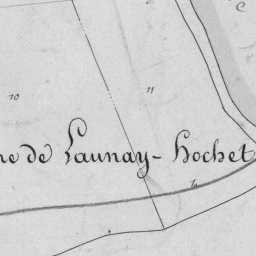 10
11
ne de Launay-Hochet